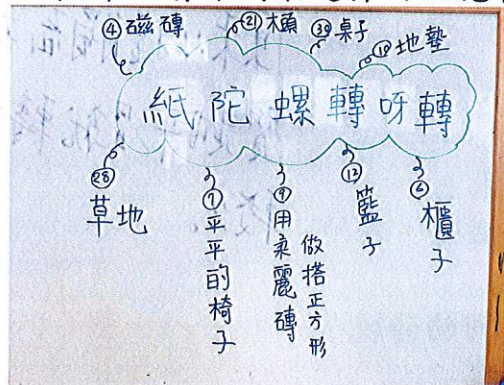 ④磁磚
㉑櫃
㊴桌子
⑲地墊
紙陀螺轉呀轉
㉘草地
⑦平平的椅子
⑨用柔麗磚
做搭正方形
⑫籃子
⑥櫃子